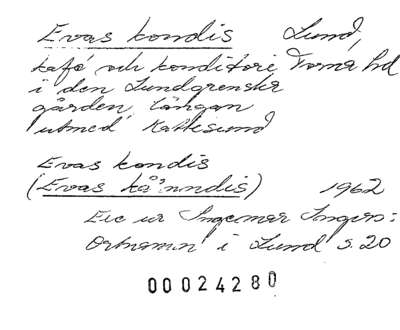 Evas kondis Lund,
kafé och konditori Torna hd
i den Lundgrenska
gården, längan
utmed Kattesund
Evas kondis
(Evas kå'nndis) 1962
Exc ur Ingemar Ingers:
Ortnamn i Lund s. 20
00024280